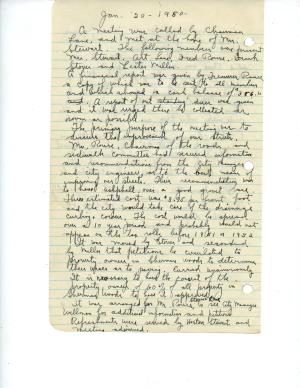 Jan. 20 - 1950.
A meeting was called by Chairman
Lane, and met at the home of Mr.
Stewart. The following members were present
Mr. Stewart, Art Lane, Fred Pearse, Frank
Stover and Lester Miller.
A financial report was given by Treasurer Pearse
a copy of which was to be sent to all members
and showed a cash balance of
A report of outstanding dues was given
and it was urged these be collected as
soon as possible.
The primary purpose of the meeting was to
discuss the improvement of our streets.
Mr. Pearse, Chairman of the roads, and
sidewalk committee had secured information
and recommendations from the city manager
and city engineer, as to the best means of
improving our streets. Their recommendation was
to have asphalt over a good gravel base.
Their estimated cost was $3.75 per front foot
and the city would take care of the drainage,
curbing, corners. The cost would be spread
over a 10 year period, and probably would not
appear on the tax rolls before 1951 or 1952
It was moved by Stover and seconded
by Miller that petitions be circulated to
property owners in Sherwood woods to determine
their views as to paving. Carried unanimously
It is necessary to have the consent of the
property owners of 60% of all property in
Sherwood woods, to have it approved.
It was arranged for Mr. Pearse, to see City Manager
for additional information and petitions.
Refreshments were served by Hostess Stewart and
meeting adjourned.